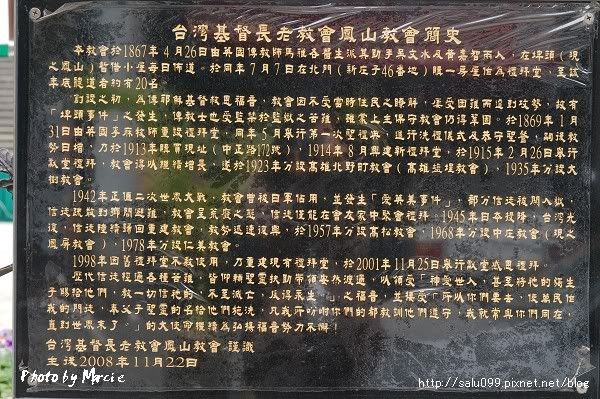 台灣基督長老教會鳳山教會簡史
本教會於1867年4月26日由英國傳教師馬雅各醫生派其助手吳文水及黃嘉智兩人,在埤頭(現
之鳳山)暫借小屋每日佈道。於同年7月7日在北門(新庄子46番地)購一房屋倍為禮拜堂,至該
年底聽道者約有20名。
創設之初,為傳耶穌基督救恩福音,教會因不受當時住民之瞭解,屢受困難而遭到攻勢,故有
「埤頭事件」之發生,傳教士也受監禁於監獄之苦難,確蒙上主保守教會仍得鞏固。於1869年1月
31日由英國李庥牧師重設禮拜堂,同年5月舉行第一次聖禮典,進行洗禮儀式及恭守聖餐,嗣後教
勢日增,乃於1913年購買現址(中正路172號),1914年8月興建新禮拜堂,於1915年2月26日舉行
獻堂禮拜,教會得以穩精增長,遂於1923年分設高雄北野町教會(高雄鹽埕教會),1935年分設大
樹教會。
1942年正值二次世界大戰,教會曾被日軍佔用,並發生「愛英美事件」,部分信徒被關入獄,
信徒疏散到鄉間避難,教會呈荒廢之態,信徒僅能在會友家中聚會禮拜;1945年日本投降,台灣光
復,信徒陸續歸回重建教會,教勢迅速復興,於1957年分設高松教會,1968年分設中庄教會(現之
鳳屏教會),1978年分設仁美教會。
1998年因舊禮拜堂不敷使用,乃重建現有禮拜堂,於2001年11月25日舉行獻堂感恩禮拜。
歷代信徒經過各種苦難,皆仰賴聖靈扶助帶領安然渡過,以領受「神愛世人,甚至將祂的獨生
子賜給他們,教一切信祂的,不至滅亡,反得永生。」之福音,並接受「所以你們要去,使萬民作
我的門徒,奉父子聖靈的名給他們施洗,凡我所吩咐你們的都教訓他們遵守,我就常與你們同在,
直到世界末了。」的大使命權積為弘揚福音努力不懈!
台灣基督長老教會鳳山教會 謹識
主後2008年11月22日
Photo by Marcie
http://salu099.pixnet.net/blog